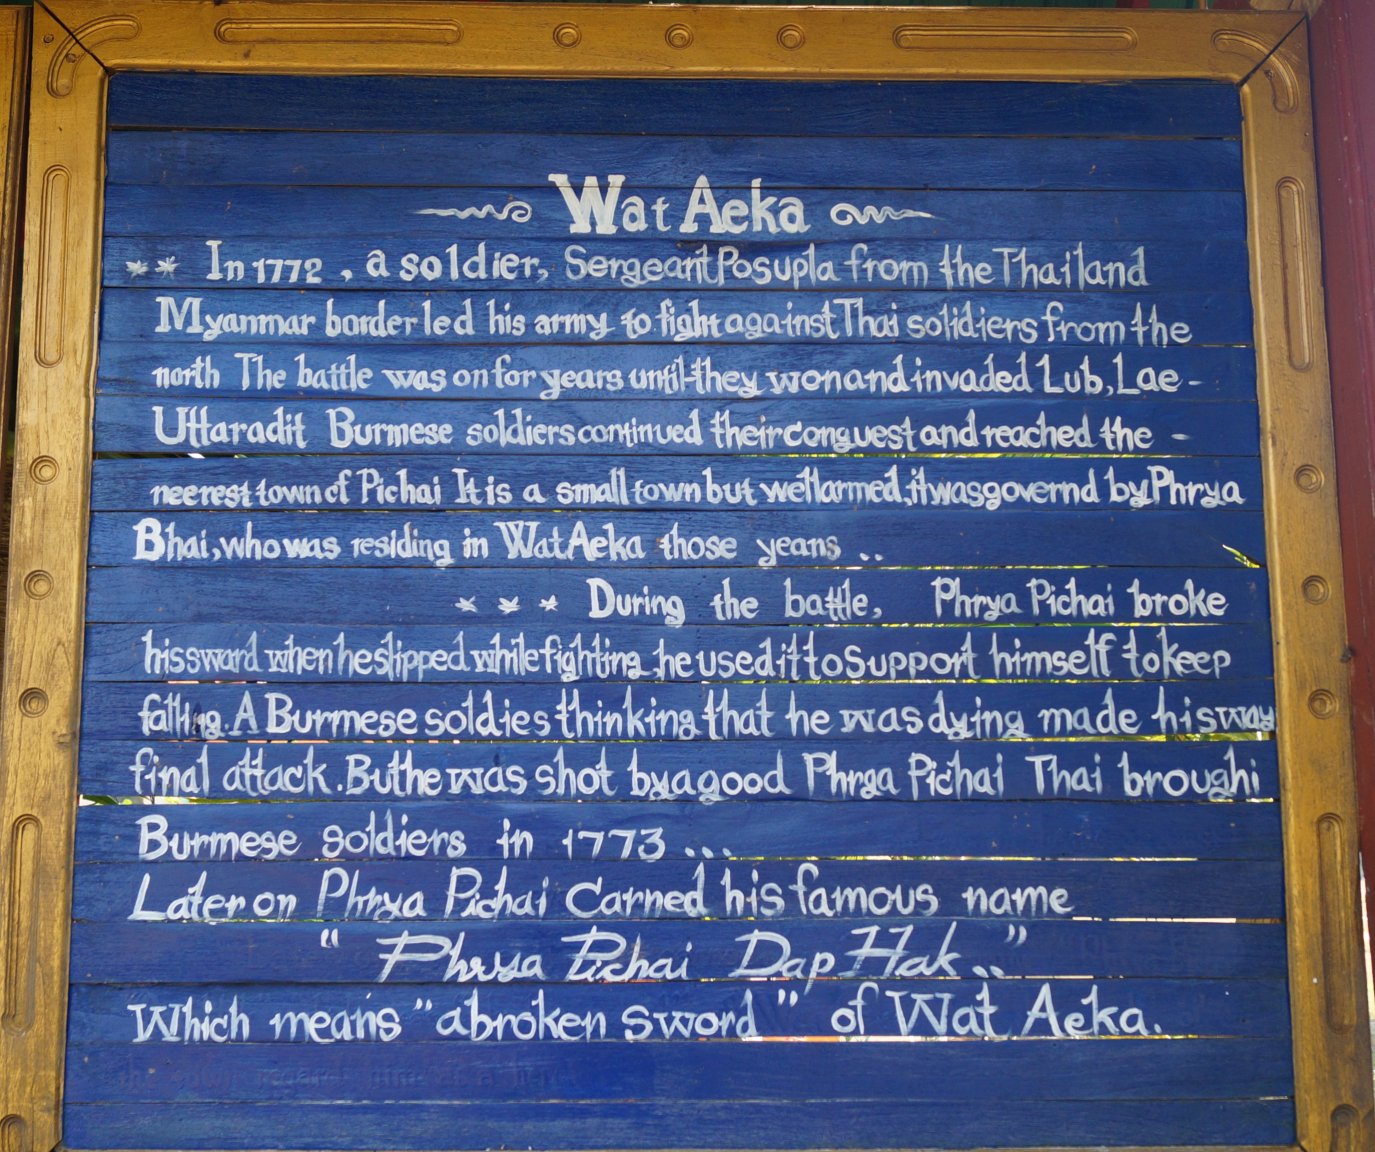 Wat Aeka
** In 1772 , a soldier, Sergeant Posupla from the Thailand
Myanmar border led his army to fight against Thai solidiers from the
north The battle was on for years until they won and invaded Lub, Lae -
Uttaradit Burmese soldiers continued their conguest and reached the -
neerest town of Pichai It is a small town but well armed, it was governd by Phrya
Bhai, who was residing in Wat Aeka those yeans ..
* * * During the battle, Phrya Pichai broke
his sword when he slipped while fighting, he used it to support himself to keep
falling. A Burmese soldies thinking that he was dying made his way
final attack. But he was shot by a good Phrya Pichai Thai broughi
Burmese soldiers in 1773 ...
Later on Phrya Pichai Carned his famous name
" Phrya Pichai Dap Hak .."
Which means " a broken sword " of Wat Aeka.